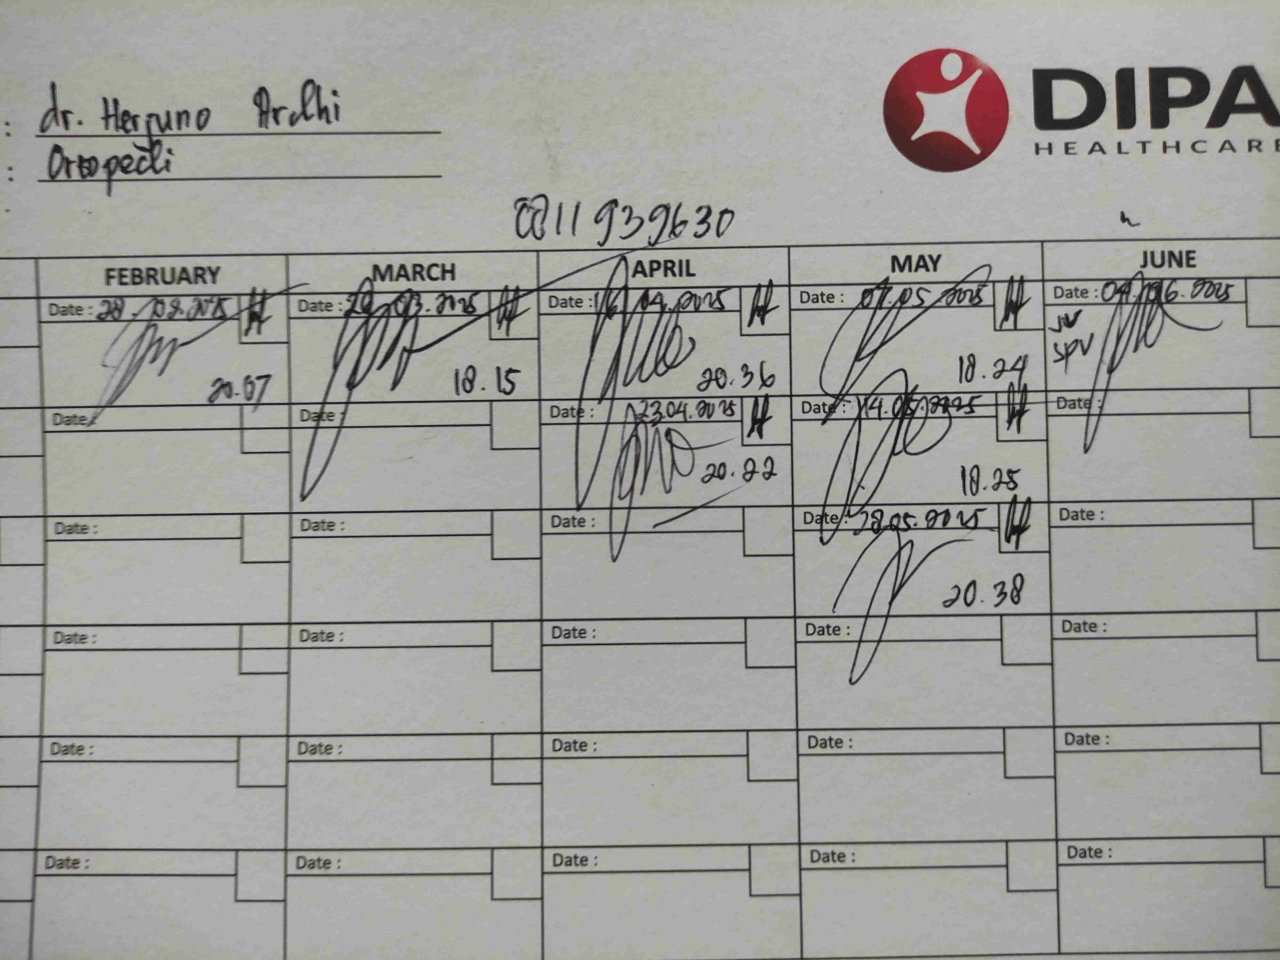 DIPA
HEALTHCARE
: dr. Herjuno Ardhi
: Ortopedi
0811939630
FEBRUARY MARCH APRIL MAY JUNE
Date : 28.02.2025 Date : 20.03.2025 Date : 16.04.2025 Date : 07.05.2025 Date : 04.06.2025
JV
SPV
20.07 18.15 20.36 18.24
Date : Date : Date : 23.04.2025 Date : 14.05.2025 Date :
20.22 18.25
Date : Date : Date : Date : 28.05.2025 Date :
20.38
Date : Date : Date : Date : Date :
Date : Date : Date : Date : Date :
Date : Date : Date : Date : Date :